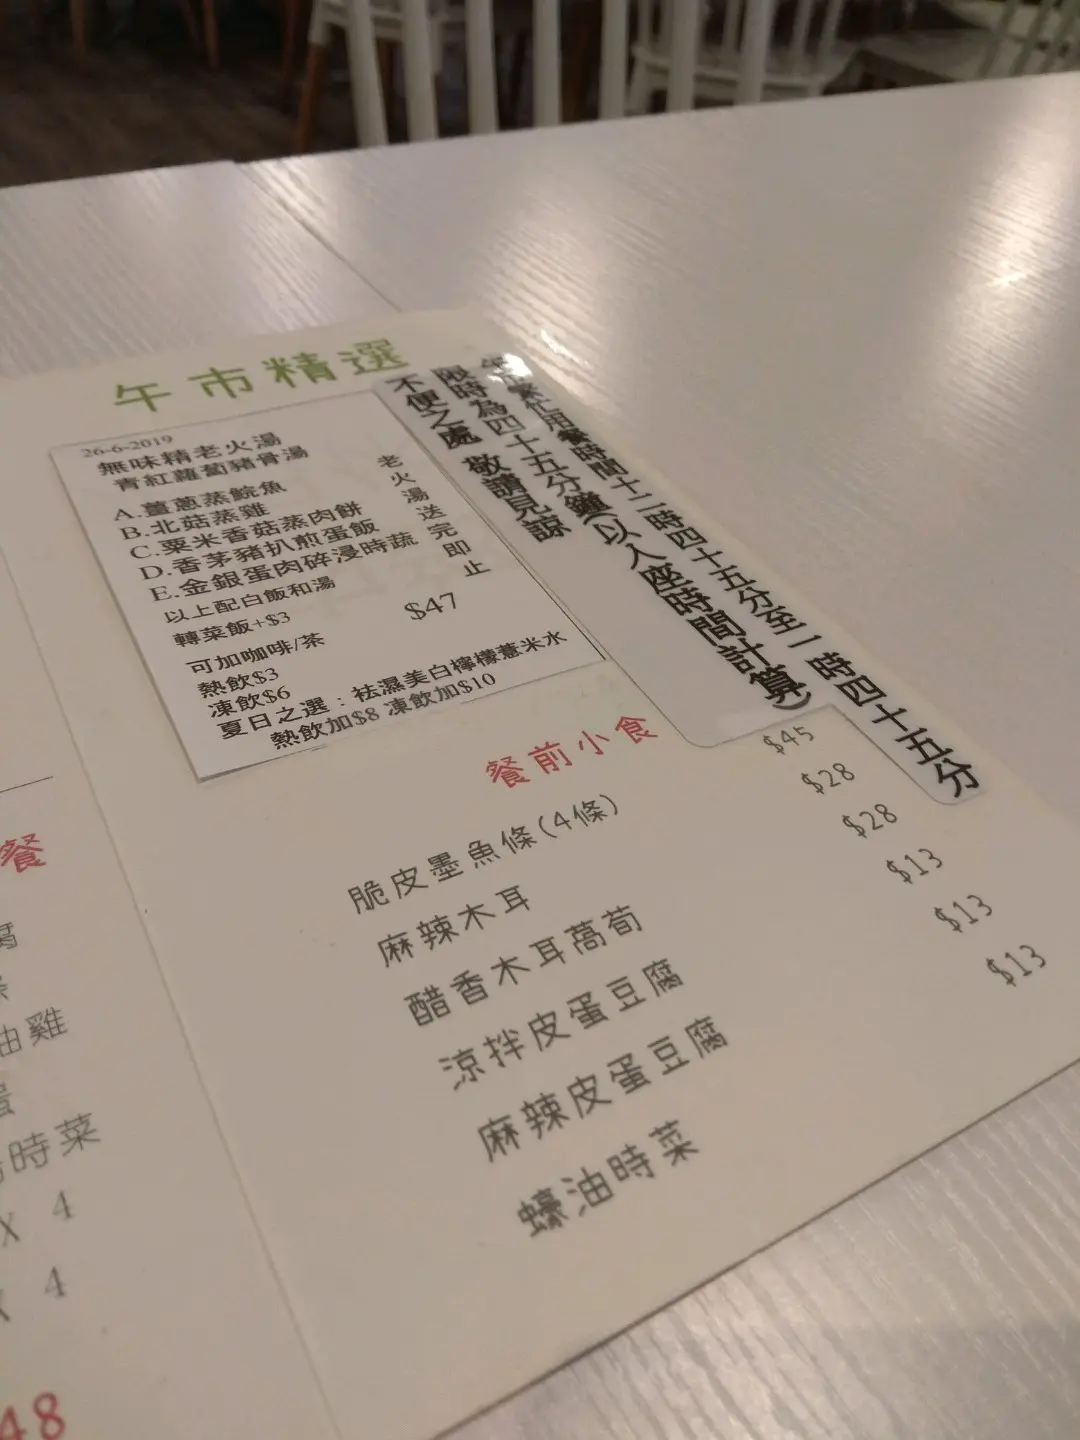 午市精選
26-6-2019
無味精老火湯
青紅蘿蔔豬骨湯
A.薑蔥蒸鯇魚
B.北菇蒸雞
C.粟米香菇蒸肉餅
D.香茅豬扒煎蛋飯
E.金銀蛋肉碎浸時蔬
老火湯送完即止
以上配白飯和湯
$47
轉菜飯+$3
可加咖啡/茶
熱飲$3
凍飲$6
夏日之選：祛濕美白檸檬薏米水
熱飲加$8 凍飲加$10
午市繁忙用餐時間十二時四十五分至一時四十五分
限時為四十五分鐘(以入座時間計算)
不便之處 敬請見諒
餐前小食
脆皮墨魚條(4條) $45
麻辣木耳 $28
醋香木耳萵荀 $28
涼拌皮蛋豆腐 $13
麻辣皮蛋豆腐 $13
蠔油時菜 $13
餐
油雞
蛋
時菜
X 4
X 4
48